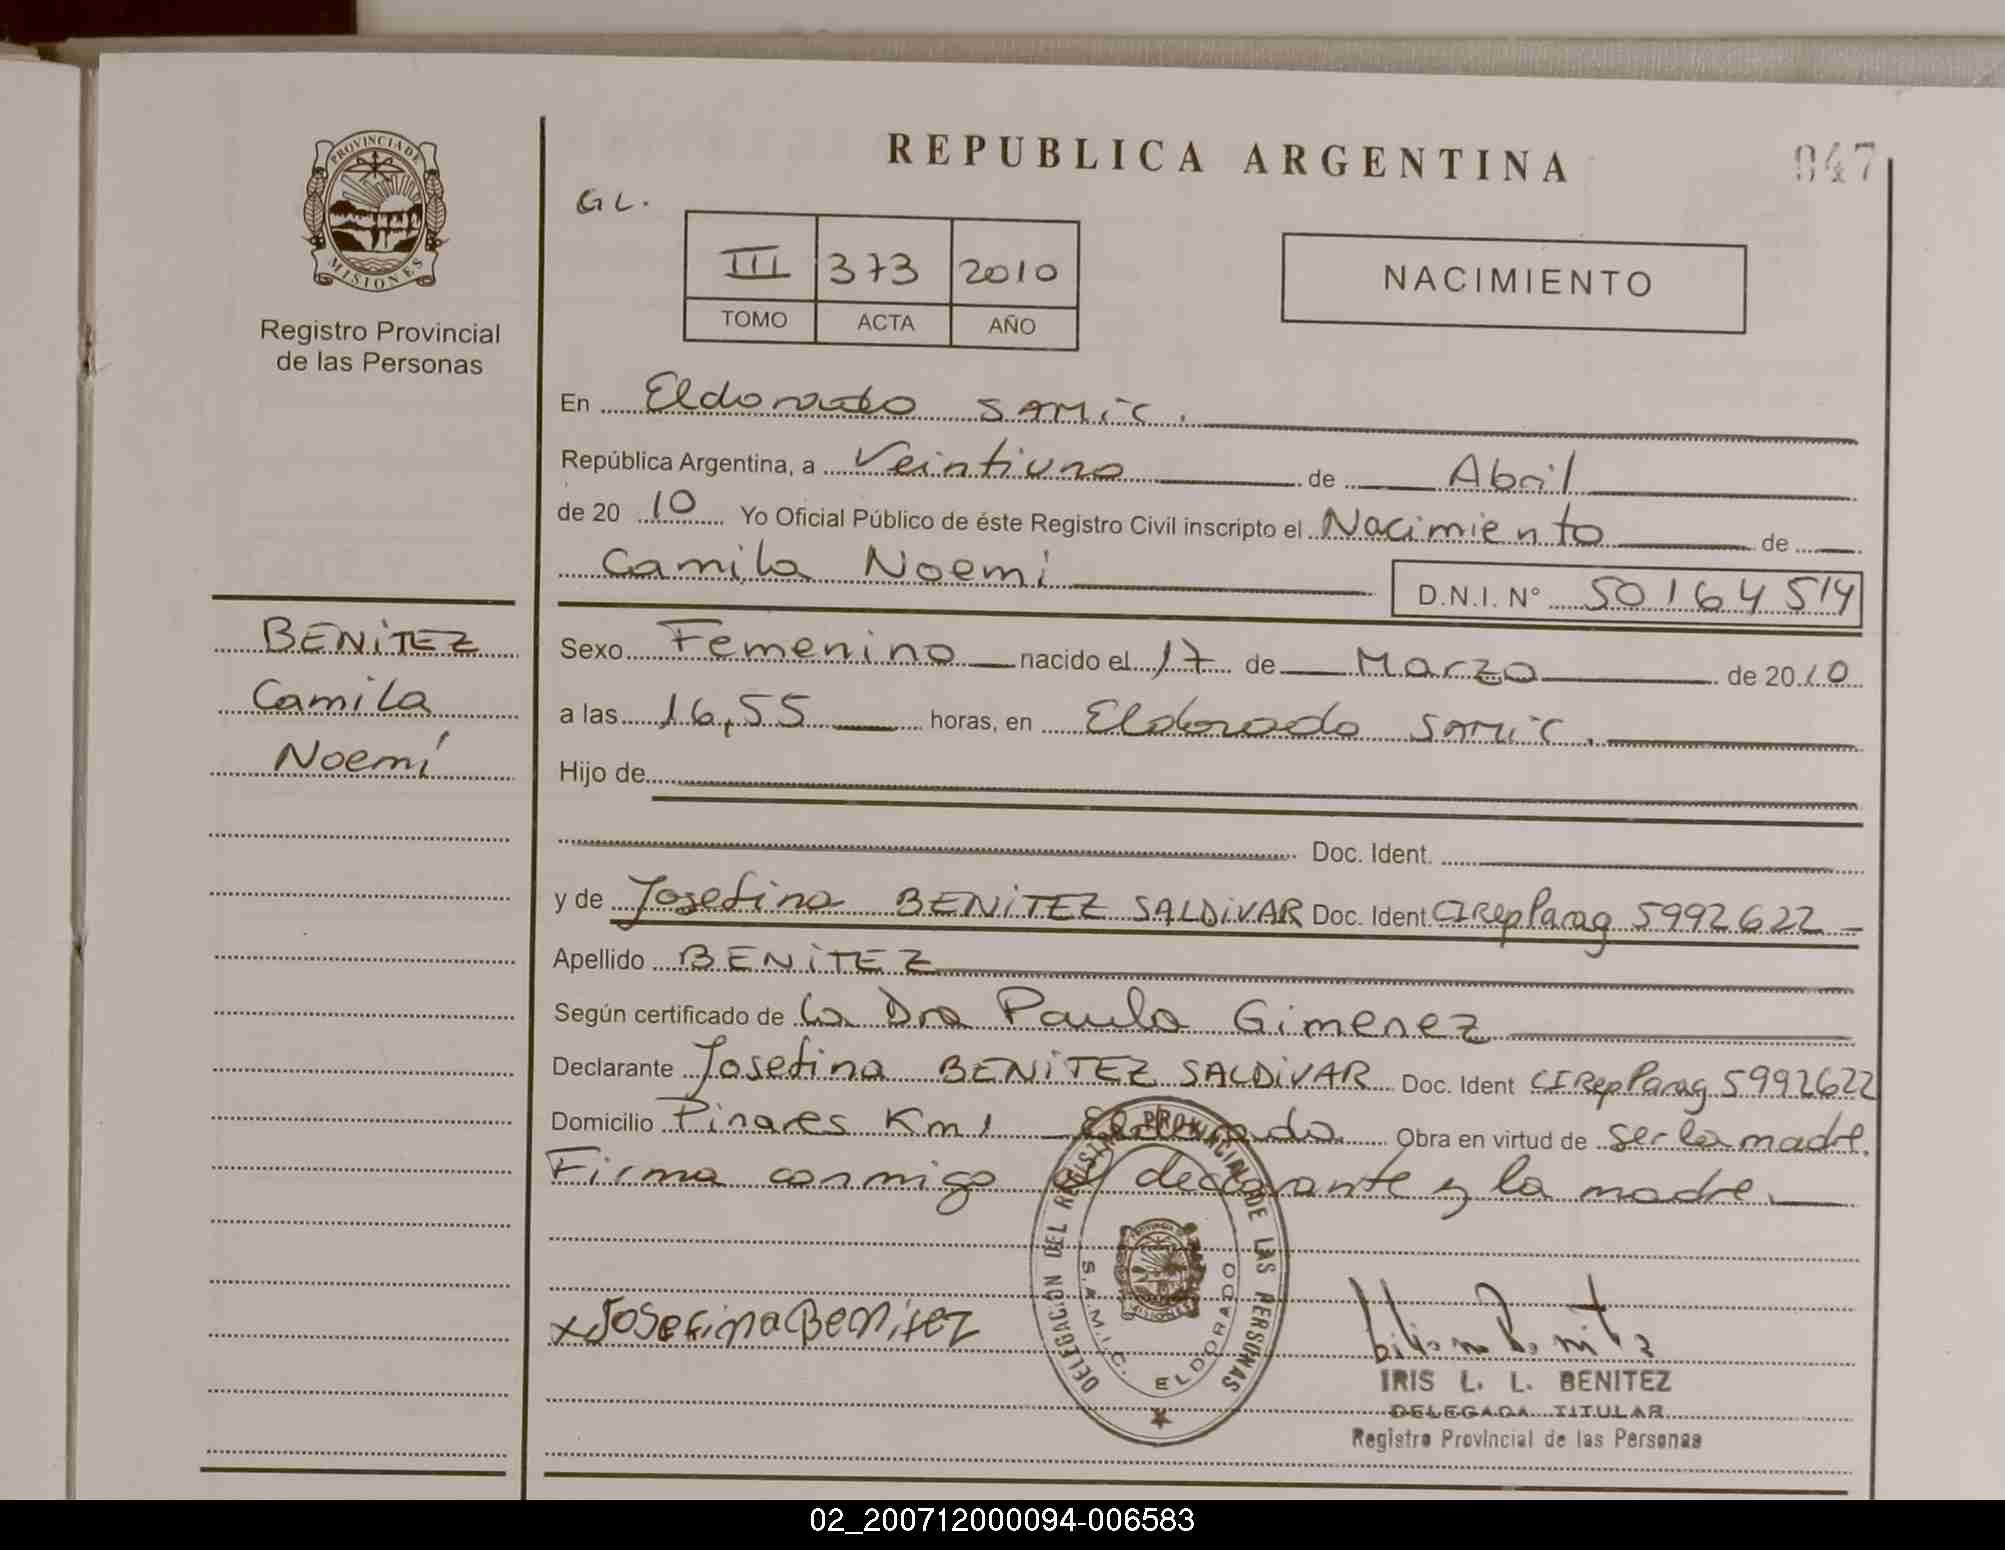 REPUBLICA ARGENTINA
047
PROVINCIA DE MISIONES
Registro Provincial
de las Personas
GL.
III 373 2010
TOMO ACTA AÑO
NACIMIENTO
En Eldorado SAMiC.
República Argentina, a Veintiuno de Abril
de 20 10 Yo Oficial Público de éste Registro Civil inscripto el Nacimiento de
Camila Noemí
D.N.I. N° 50164514
BENiTEZ
Camila
Noemí
Sexo Femenino nacido el 17 de Marzo de 2010
a las 16,55 horas, en Eldorado SAMiC.
Hijo de
Doc. Ident.
y de Josefina BENiTEZ SALDiVAR Doc. Ident. CI Rep Parag 5992622
Apellido BENiTEZ
Según certificado de la Dra Paula Gimenez
Declarante Josefina BENiTEZ SALDiVAR Doc. Ident CI Rep Parag 5992622
Domicilio Pinares Km 1 Eldorado Obra en virtud de ser la madre.
Firma conmigo el declarante y la madre.
DELEGACION DEL REGISTRO PROVINCIAL DE LAS PERSONAS
S.A.M.I.C. ELDORADO
x Josefina Benítez
IRIS L. L. BENITEZ
DELEGADA TITULAR
Registro Provincial de las Personas
02_200712000094-006583